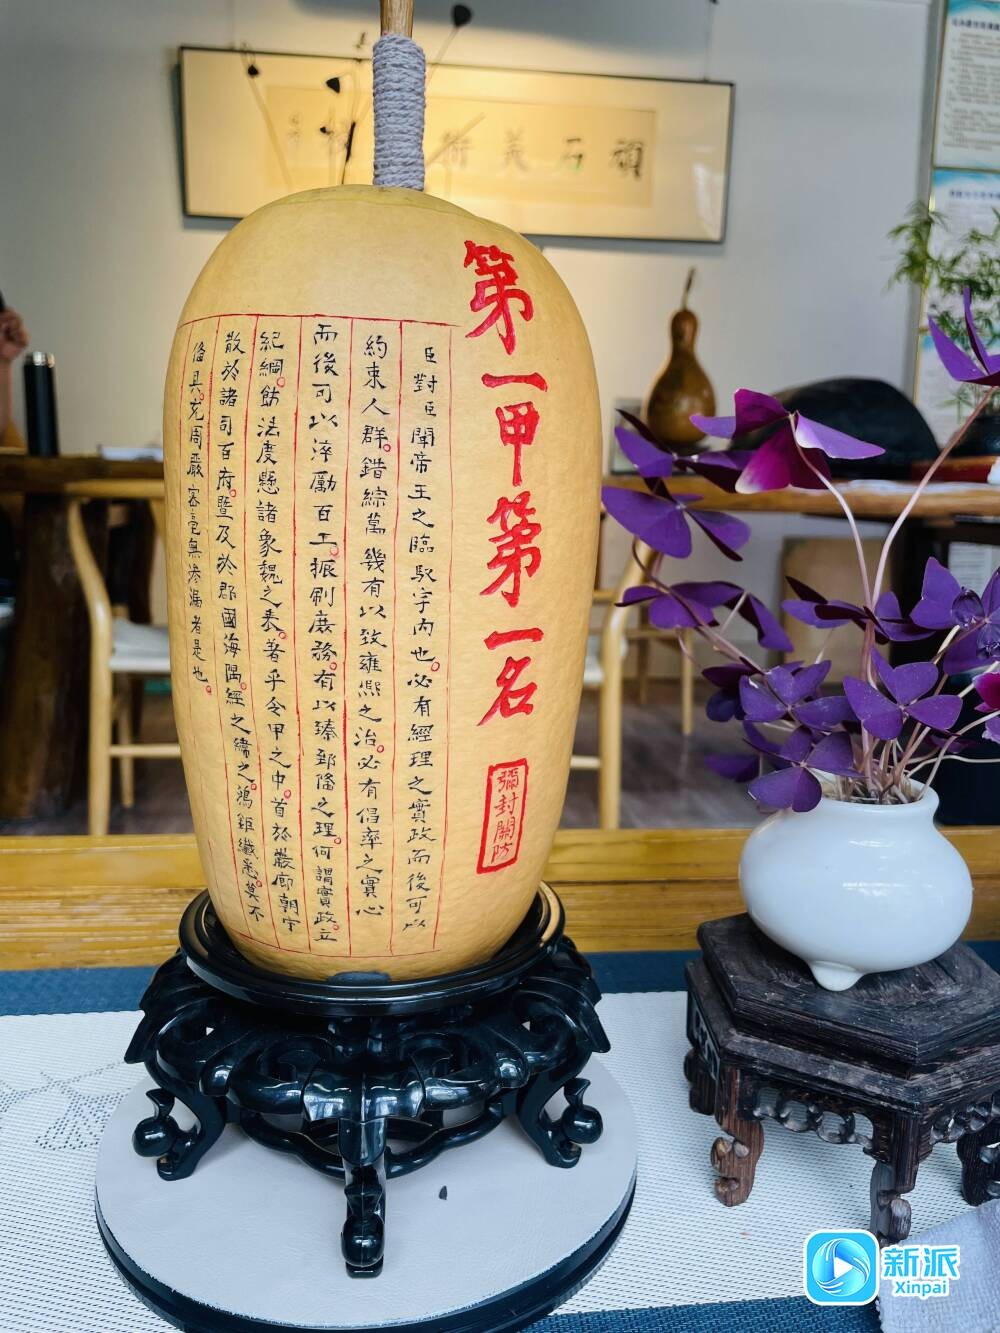 第一甲第一名
彌封關防
臣對臣聞帝王之臨馭宇內也必有經理之實政而後可以
約束人群錯綜萬幾有以致雍熙之治必有倡率之實心
而後可以淬勵百工振刷庶務有以臻郅隆之理何謂實政立
紀綱飭法度懸諸象魏之表著乎令甲之中首於巖廊朝宁
散於諸司百府暨及於郡國海隅經之緯之鴻鉅纖悉莫不
備具充周嚴密毫無滲漏者是也
頑石美術
新派
Xinpai